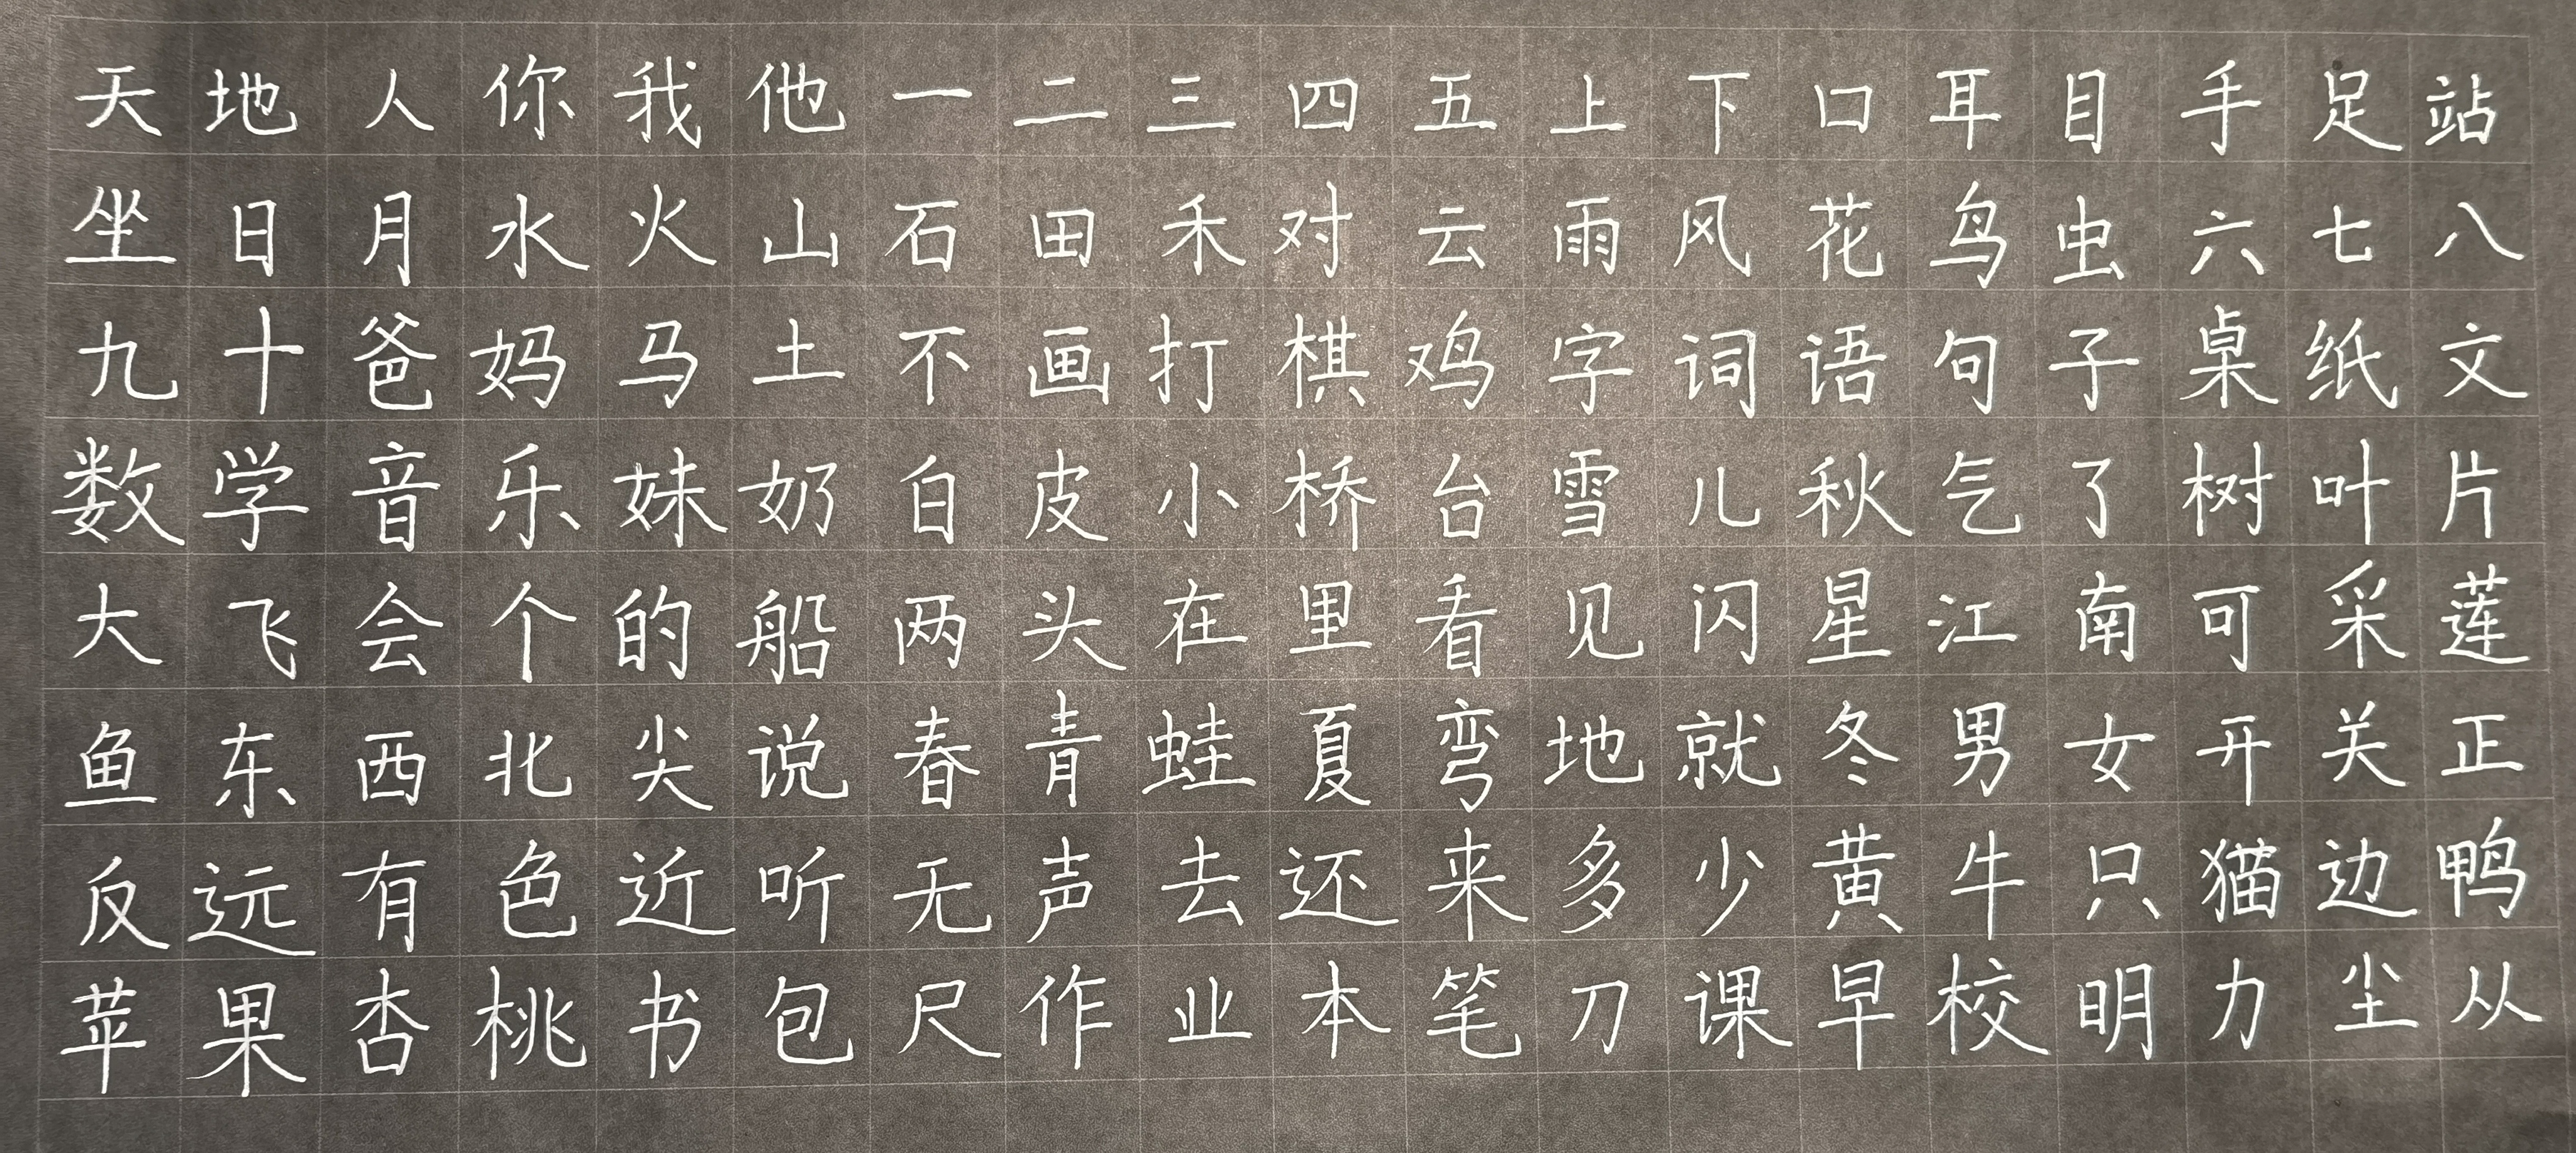 天地人你我他一二三四五上下口耳目手足站
坐日月水火山石田禾对云雨风花鸟虫六七八
九十爸妈马土不画打棋鸡字词语句子桌纸文
数学音乐妹奶白皮小桥台雪儿秋气了树叶片
大飞会个的船两头在里看见闪星江南可采莲
鱼东西北尖说春青蛙夏弯地就冬男女开关正
反远有色近听无声去还来多少黄牛只猫边鸭
苹果杏桃书包尺作业本笔刀课早校明力尘从